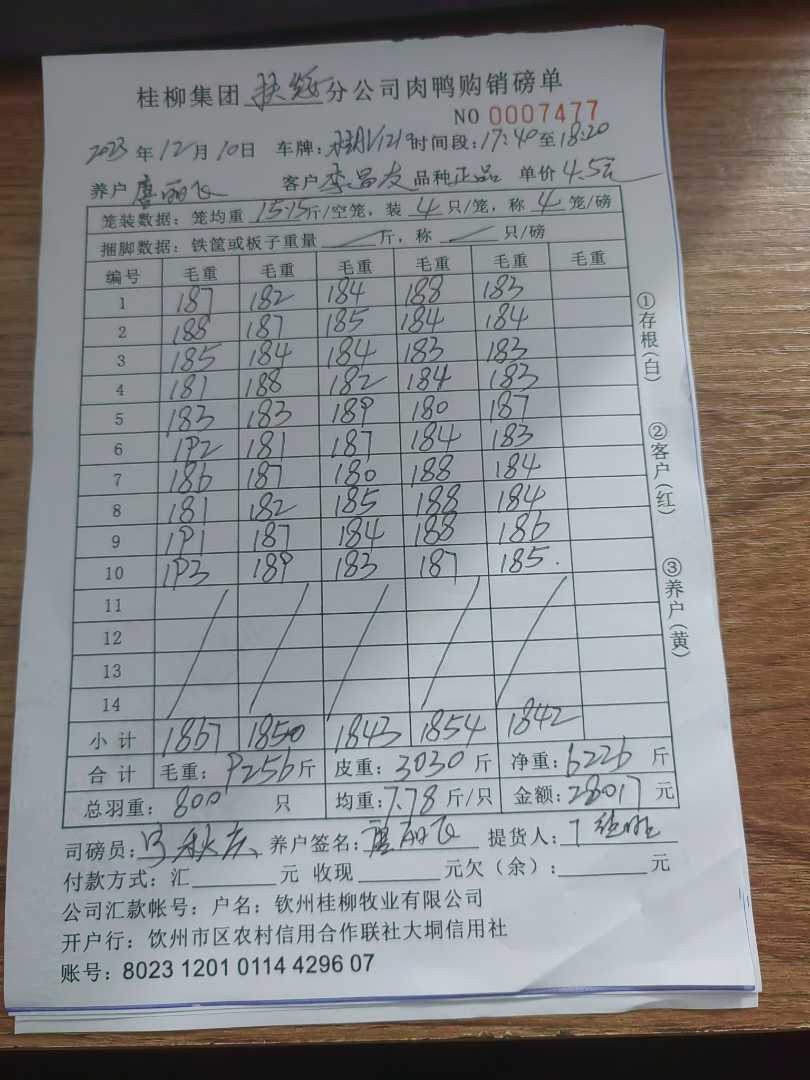 桂柳集团扶绥分公司肉鸭购销磅单
NO 0007477
2023年12月10日 车牌: 时间段:17:40至18:20
养户 唐丽飞 客户李昌友 品种正品 单价4.5元
笼装数据: 笼均重 15.15斤/空笼, 装 4 只/笼, 称 4 笼/磅
捆脚数据: 铁筐或板子重量 斤, 称 只/磅
编号 毛重 毛重 毛重 毛重 毛重 毛重
1 187 182 184 188 183
2 188 187 185 184 184
3 185 184 184 183 183
4 181 188 182 184 183
5 183 183 189 180 187
6 192 181 187 184 183
7 186 187 180 188 184
8 181 182 185 188 184
9 191 187 184 188 186
10 193 189 183 187 185.
11
12
13
14
小计 1867 1850 1843 1854 1842
合计 毛重: 9256斤 皮重: 3030斤 净重: 6226斤
总羽重: 800 只 均重: 7.78斤/只 金额: 28017元
司磅员: 养户签名: 唐丽飞 提货人:
付款方式: 汇 元 收现 元欠(余): 元
公司汇款帐号: 户名: 钦州桂柳牧业有限公司
开户行: 饮州市区农村信用合作联社大垌信用社
账号: 8023 1201 0114 4296 07
①存根(白)
②客户(红)
③养户(黄)